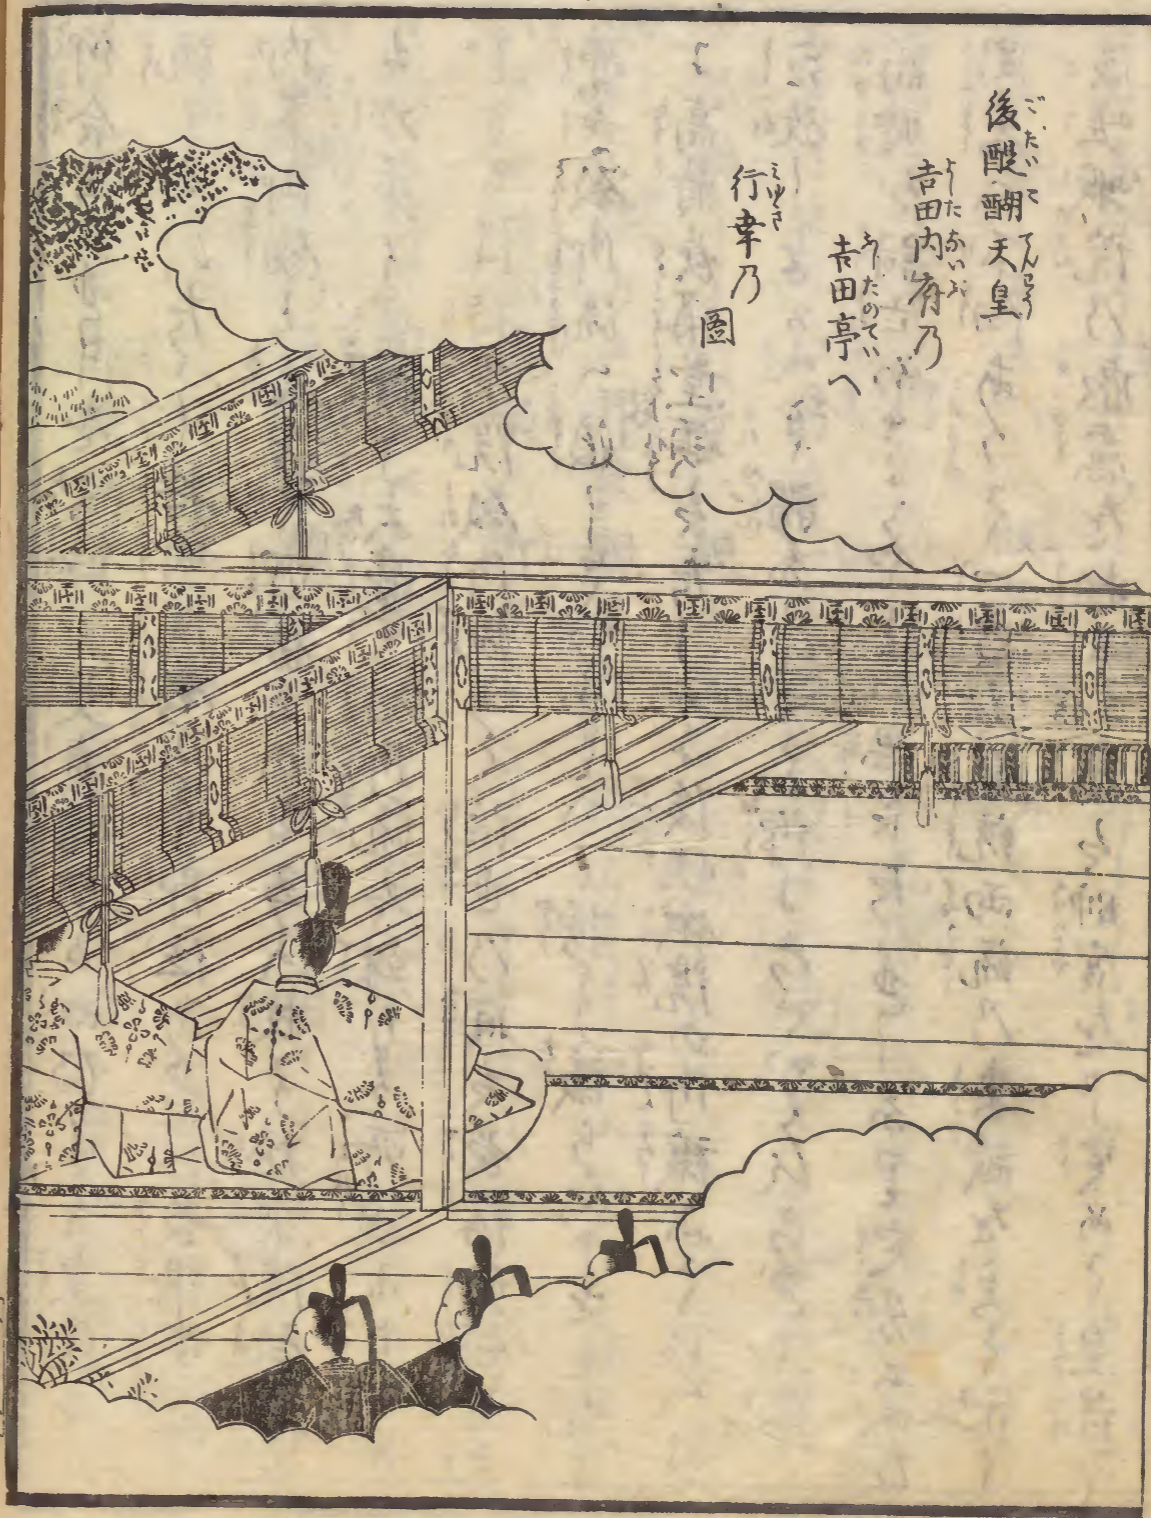 後醍醐天皇
吉田内府乃
吉田亭へ
行幸乃
圖